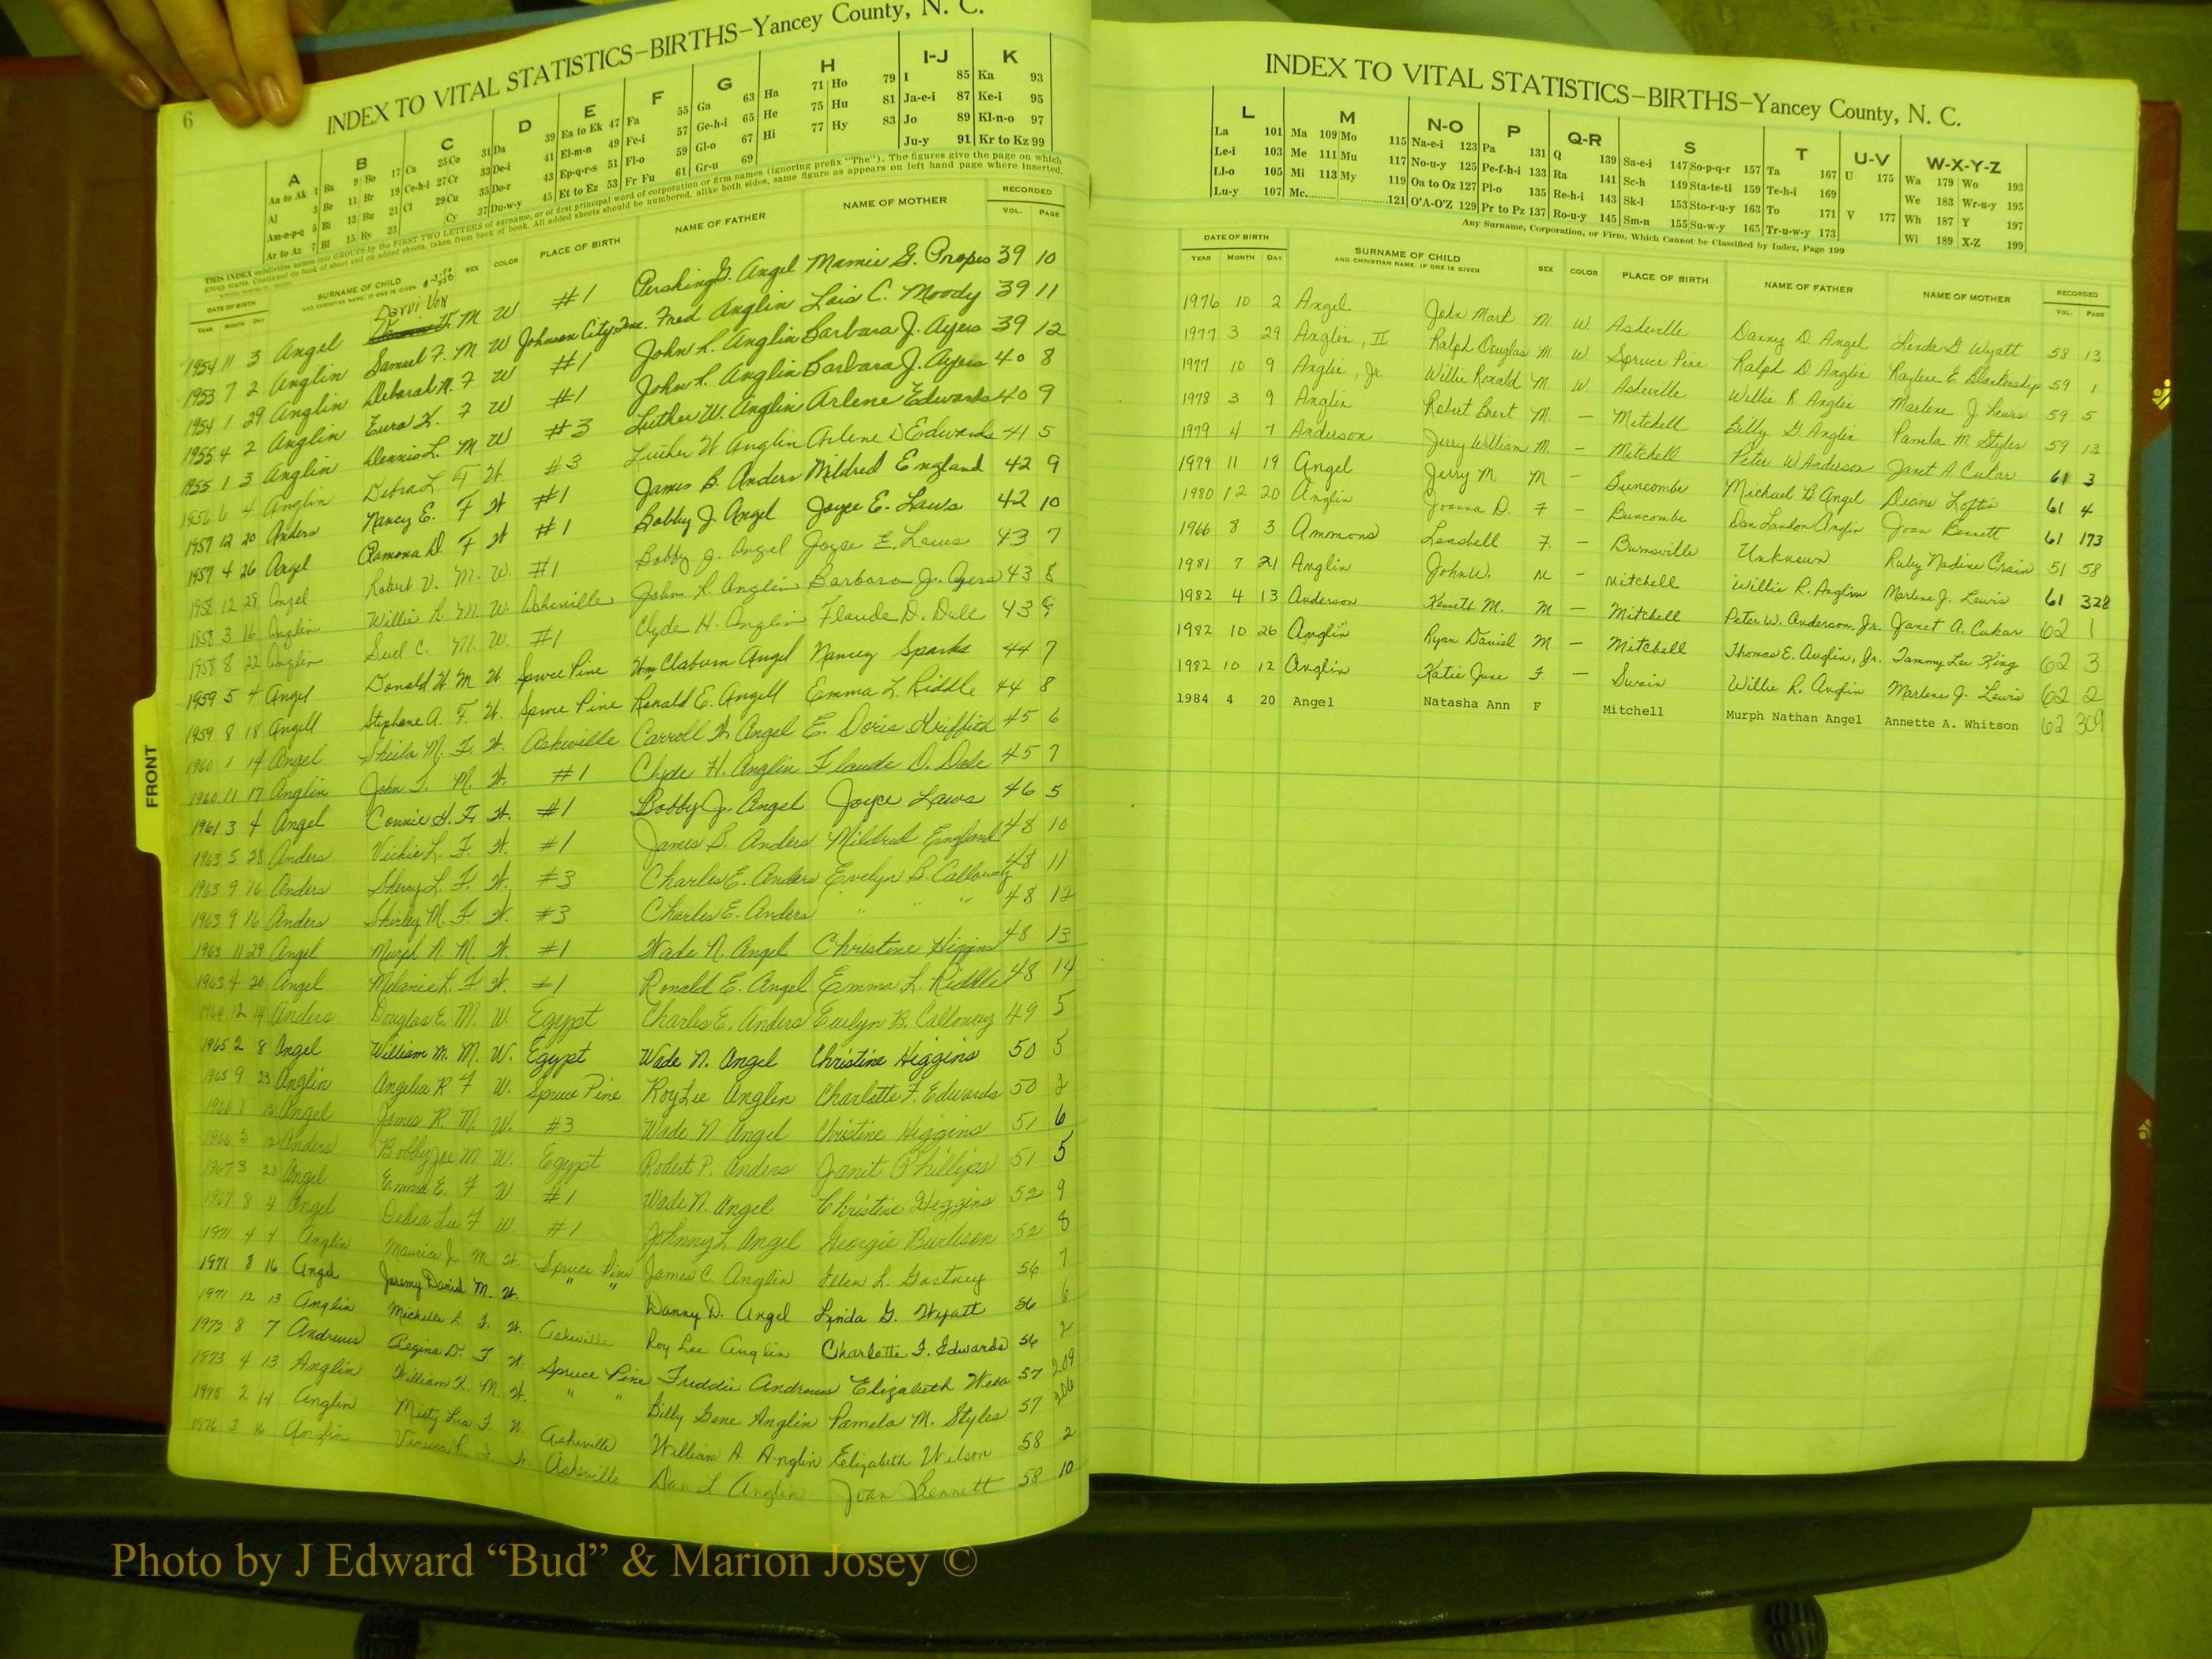 6
INDEX TO VITAL STATISTICS–BIRTHS–Yancey County, N. C.
A B C D E F G H I-J K
Aa to Ak 1 Ba 9 Bo 17 Ca 25 Co 31 Da 39 Ea to Ek 47 Fa 55 Ga 63 Ha 71 Ho 79 I 85 Ka 93
Al 3 Be 11 Br 19 Ce-h-i 27 Cr 33 De-i 41 El-m-n 49 Fe-i 57 Ge-h-i 65 He 75 Hu 81 Ja-e-i 87 Ke-i 95
Am-n-p-q 5 Bi 13 Bu 21 Cl 29 Cu 35 Do-r 43 Ep-q-r-s 51 Fl-o 59 Gl-o 67 Hi 77 Hy 83 Jo 89 Kl-n-o 97
Ar to Az 7 Bl 15 By 23 Cy 37 Du-w-y 45 Et to Ez 53 Fr Fu 61 Gr-u 69 Ju-y 91 Kr to Kz 99
THIS INDEX subdivides names into GROUPS by the FIRST TWO LETTERS of surname, or of first principal word of corporation or firm names (ignoring prefix "The"). The figures give the page on which
group starts. Continued on back of sheet and on added sheets, taken from back of book. All added sheets should be numbered, alike both sides, same figure as appears on left hand page where inserted.
DATE OF BIRTH SURNAME OF CHILD SEX COLOR PLACE OF BIRTH NAME OF FATHER NAME OF MOTHER RECORDED
YEAR MONTH DAY AND CHRISTIAN NAME, IF ONE IS GIVEN VOL. PAGE
1954 11 3 Angel M W #1 Pershing G. Angel Mamie G. Propes 39 10
1953 7 2 Anglin Samuel F. M W Johnson City Fred Anglin Lois C. Moody 39 11
1954 1 29 Anglin Deborah F W #1 John R. Anglin Barbara J. Ayers 39 12
1955 4 2 Anglin Eura K. F W #1 John R. Anglin Barbara J. Ayers 40 8
1955 1 3 Anglin Dennis L. M W #3 Luther W. Anglin Arlene Edwards 40 9
1956 6 4 Anglin Debra L. F W. #3 Luther W Anglin Arlene D Edwards 41 5
1957 12 20 Anders Nancy E. F W #1 James B. Anders Mildred England 42 9
1957 4 26 Angel Ramona D. F W #1 Bobby J. Angel Joyce E. Laws 42 10
1958 12 29 Angel Robert V. M. W. #1 Bobby J. Angel Joyce E. Laws 43 7
1958 3 16 Anglin Willie R. M. W. Asheville John R. Anglin Barbara J. Ayers 43 8
1958 8 22 Anglin Suel C. M. W. #1 Clyde H. Anglin Flaude D. Dale 43 9
1959 5 4 Angel Donald W M W Spruce Pine Wm Claburn Angel Nancy Sparks 44 7
1959 8 18 Angell Stephane A. F. W. Spruce Pine Ronald E. Angell Emma L. Riddle 44 8
1960 1 14 Angel Sheila M. F. W. Asheville Carroll W. Angel E. Doris Griffith 45 6
1960 11 17 Anglin John T. M. W. #1 Clyde H. Anglin Flaude D. Dale 45 7
1961 3 4 Angel Connie G. F. W. #1 Bobby J. Angel Joyce Laws 46 5
1963 5 28 Anders Vickie L. F. W. #1 James B. Anders Mildred England 48 10
1963 9 16 Anders Sherry L. F. W. #3 Charles E. Anders Evelyn B. Calloway 48 11
1963 9 16 Anders Shirley M. F. W. #3 Charles E. Anders " " " 48 12
1963 11 29 Angel Murph N. M. W. #1 Wade N. Angel Christine Higgins 48 13
1963 4 20 Angel Melanie L. F W. #1 Ronald E. Angel Emma L. Riddle 48 14
1964 12 14 Anders Douglas E. M. W. Egypt Charles E. Anders Evelyn B. Calloway 49 5
1965 2 8 Angel William M. M. W. Egypt Wade N. Angel Christine Higgins 50 5
1965 9 23 Anglin Angelia R F W. Spruce Pine Roy Lee Anglin Charlotte F. Edwards 50 2
1966 1 13 Angel James R. M. W. #3 Wade N Angel Christine Higgins 51 6
1966 5 12 Anders Bobby Joe M. W. Egypt Robert P. Anders Janet Phillips 51 5
1967 3 20 Angel Emma E. F W #1 Wade N. Angel Christine Higgins 52 9
1967 8 4 Angel Debra Lee F W. #1 Johnny L. Angel Georgie Burleson 52 8
1971 4 4 Anglin Maurice Jr. M W. Spruce Pine James C. Anglin Helen L. 56 7
1971 8 16 Angel Jeremy David M. W. " " Danny D. Angel Linda G. Wyatt 56 6
1971 12 13 Anglin Michelle L. F. W. Asheville Roy Lee Anglin Charlotte F. Edwards 56 2
1972 8 7 Andrews Regina D. F W. Spruce Pine Freddie Andrews Elizabeth 57 209
1973 4 13 Anglin William K. M. W. " " Billy Gene Anglin Pamela M. Styles 57 206
1975 2 14 Anglin Misty Lea F. W Asheville William A Anglin Elizabeth Wilson 58 2
1976 3 16 Anglin Asheville Dan L Anglin Joan Bennett 58 10
FRONT
INDEX TO VITAL STATISTICS–BIRTHS–Yancey County, N. C.
L M N-O P Q-R S T U-V W-X-Y-Z
La 101 Ma 109 Mo 115 Na-e-i 123 Pa 131 Q 139 Sa-e-i 147 So-p-q-r 157 Ta 167 U 175 Wa 179 Wo 193
Le-i 103 Me 111 Mu 117 No-u-y 125 Pe-f-h-i 133 Ra 141 Sc-h 149 Sta-te-ti 159 Te-h-i 169 We 183 Wr-u-y 195
Ll-o 105 Mi 113 My 119 Oa to Oz 127 Pl-o 135 Re-h-i 143 Sk-l 153 Sto-r-u-y 163 To 171 V 177 Wh 187 Y 197
Lu-y 107 Mc 121 O'A-O'Z 129 Pr to Pz 137 Ro-u-y 145 Sm-n 155 Su-w-y 165 Tr-u-w-y 173 Wi 189 X-Z 199
Any Surname, Corporation, or Firm, Which Cannot be Classified by Index, Page 199
DATE OF BIRTH SURNAME OF CHILD SEX COLOR PLACE OF BIRTH NAME OF FATHER NAME OF MOTHER RECORDED
YEAR MONTH DAY AND CHRISTIAN NAME, IF ONE IS GIVEN VOL. PAGE
1976 10 2 Angel John Mark M W. Asheville Danny D. Angel Linda G Wyatt 58 13
1977 3 29 Anglin, II Ralph Douglas M W. Spruce Pine Ralph D. Anglin Raylene E. Blankenship 59 1
1977 10 9 Anglin, Jr. Willie Ronald M W. Asheville Willie R Anglin Marlene J. Lewis 59 5
1978 3 9 Anglin Robert Brent M. – Mitchell Billy G Anglin Pamela M Styles 59 13
1979 4 7 Anderson Jerry William M. – Mitchell Peter W Anderson Janet A Cukar 61 3
1979 11 19 Angel Jerry M M – Buncombe Michael B Angel Diane Loftis 61 4
1980 12 20 Anglin Joanna D. F – Buncombe Dan Landon Anglin Joan Bennett 61 173
1966 8 3 Ammons Leashell F. – Burnsville Unknown Ruby Nadine Crain 51 58
1981 7 21 Anglin John W. M – Mitchell Willie R. Anglin Marlene J. Lewis 61 328
1982 4 13 Anderson Kenneth M. M – Mitchell Peter W. Anderson, Jr. Janet A. Cukar 62 1
1982 10 26 Anglin Ryan Daniel M – Mitchell Thomas E. Anglin, Jr. Tammy Lee King 62 3
1982 10 12 Anglin Katie June F. – Swain Willie R. Anglin Marlene J. Lewis 62 2
1984 4 20 Angel Natasha Ann F Mitchell Murph Nathan Angel Annette A. Whitson 62 309
Photo by J Edward “Bud” & Marion Josey ©